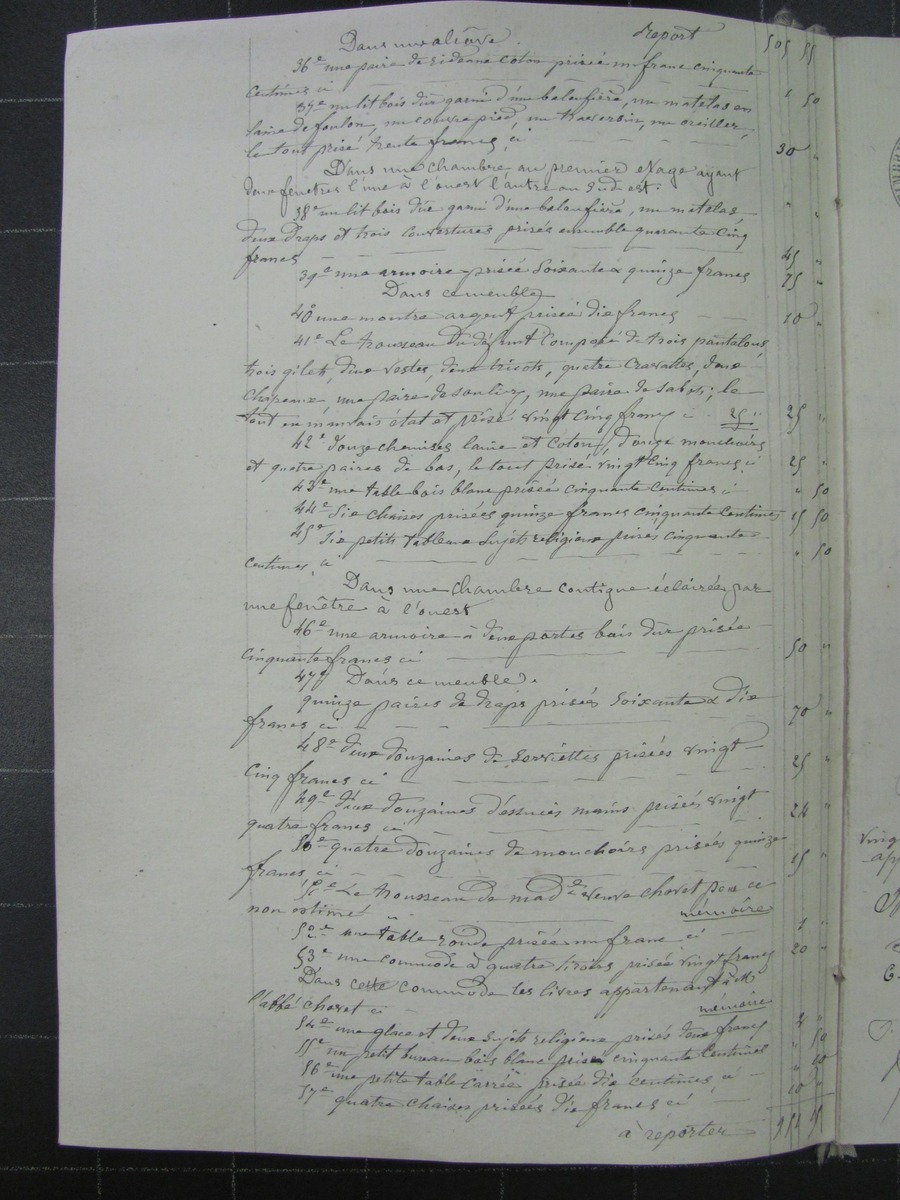 Dans une alcôve. report 505 55
36e une paire de rideaux coton prisée un franc cinquante
centimes ci 1 50
37e un lit bois dur garni d'une baloufière, un matelas en
laine de foulon, un couvre pied, un traversin, un oreiller,
le tout prisé trente francs, ci 30 "
Dans une chambre au premier étage ayant
deux fenêtres l'une à l'ouest l'autre au sud est.
38e un lit bois dur garni d'une baloufière, un matelas, " "
deux draps et trois couvertures prisés ensemble quarante cinq
francs 45 "
39e une armoire prisée soixante & quinze francs 75 "
Dans ce meuble
40e une montre argent prisée dix francs 10 "
41e Le trousseau du défunt composé de trois pantalons,
trois gilets, deux vestes, deux tricots, quatre cravattes, deux
chapeaux, une paire de souliers, une paire de sabots; le
tout en mauvais état et prisé vingt cinq francs ci 25 " 25 "
42e douze chemises laine et coton, douze mouchoirs
et quatre paires de bas, le tout prisé vingt cinq francs ci 25 "
43e une table bois blanc prisée cinquante centimes ci " 50
44e dix chaises prisées quinze francs cinquante centimes 15 50
45e dix petits tableaux sujets religieux prisés cinquante
centimes, ci " 50
Dans une chambre contigue éclairée par
une fenêtre à l'ouest
46e une armoire à deux portes bois dur prisée
cinquante francs ci 50 "
47e Dans ce meuble.
quinze paires de draps prisés soixante & dix
francs ci 70 "
48e deux douzaines de serviettes prisées vingt
cinq francs ci 25 "
49e deux douzaines d'essuies mains prisés vingt
quatre francs ci 24 "
50e quatre douzaines de mouchoirs prisées quinze
francs ci 15 "
51e Le trousseau de made veuve chovet pour ce
non estimé ci mémoire
52e une table ronde prisée un franc ci 1 "
53e une commode à quatre tiroirs prisée vingt francs 20 "
Dans cette commode les livres appartenant à Mr
l'abbé chovet ci mémoire
54e une glace et deux sujets religieux prisés deux francs 2 "
55e un petit bureau bois blanc prisé cinquante centimes " 50
56e une petite table carrée prisée dix centimes ci " 10
57e quatre chaises prisées dix francs ci 10 "
à reporter